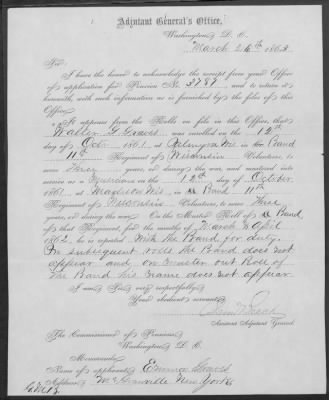 Adjutant General's Office,
Washington, D. C.
March 26th 1863.
Sir:
I have the honor to acknowledge the receipt from your Office
of application for Pension No. 3787, and to return it
herewith, with such information as is furnished by the files of this
Office.
It appears from the Rolls on file in this Office, that
Walter G. Graves was enrolled on the 12th
day of Octr 1861, at Palmyra Wis. in the Band
11th Regiment of Wisconsin Volunteers, to
serve Three years, or during the war, and mustered into
service as a Musician on the 12th day of October
1861, at Madison Wis, in Band 11th
Regiment of Wisconsin Volunteers, to serve Three
years, or during the war. On the Muster Roll of Band
of that Regiment, for the months of March & April
1862, he is reported With the Band for duty.
In subsequent rolls the Band does not
appear and on muster out Roll of
the Band his name does not appear.
I am, Sir, very respectfully,
Your obedient servant,
Assistant Adjutant General
The Commissioner of Pensions,
Washington, D. C.
Memoranda:
Name of applicant, Emma Graves
Address, Mc Granville New York